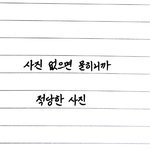 사진 없으면 묻히니까
적당한 사진